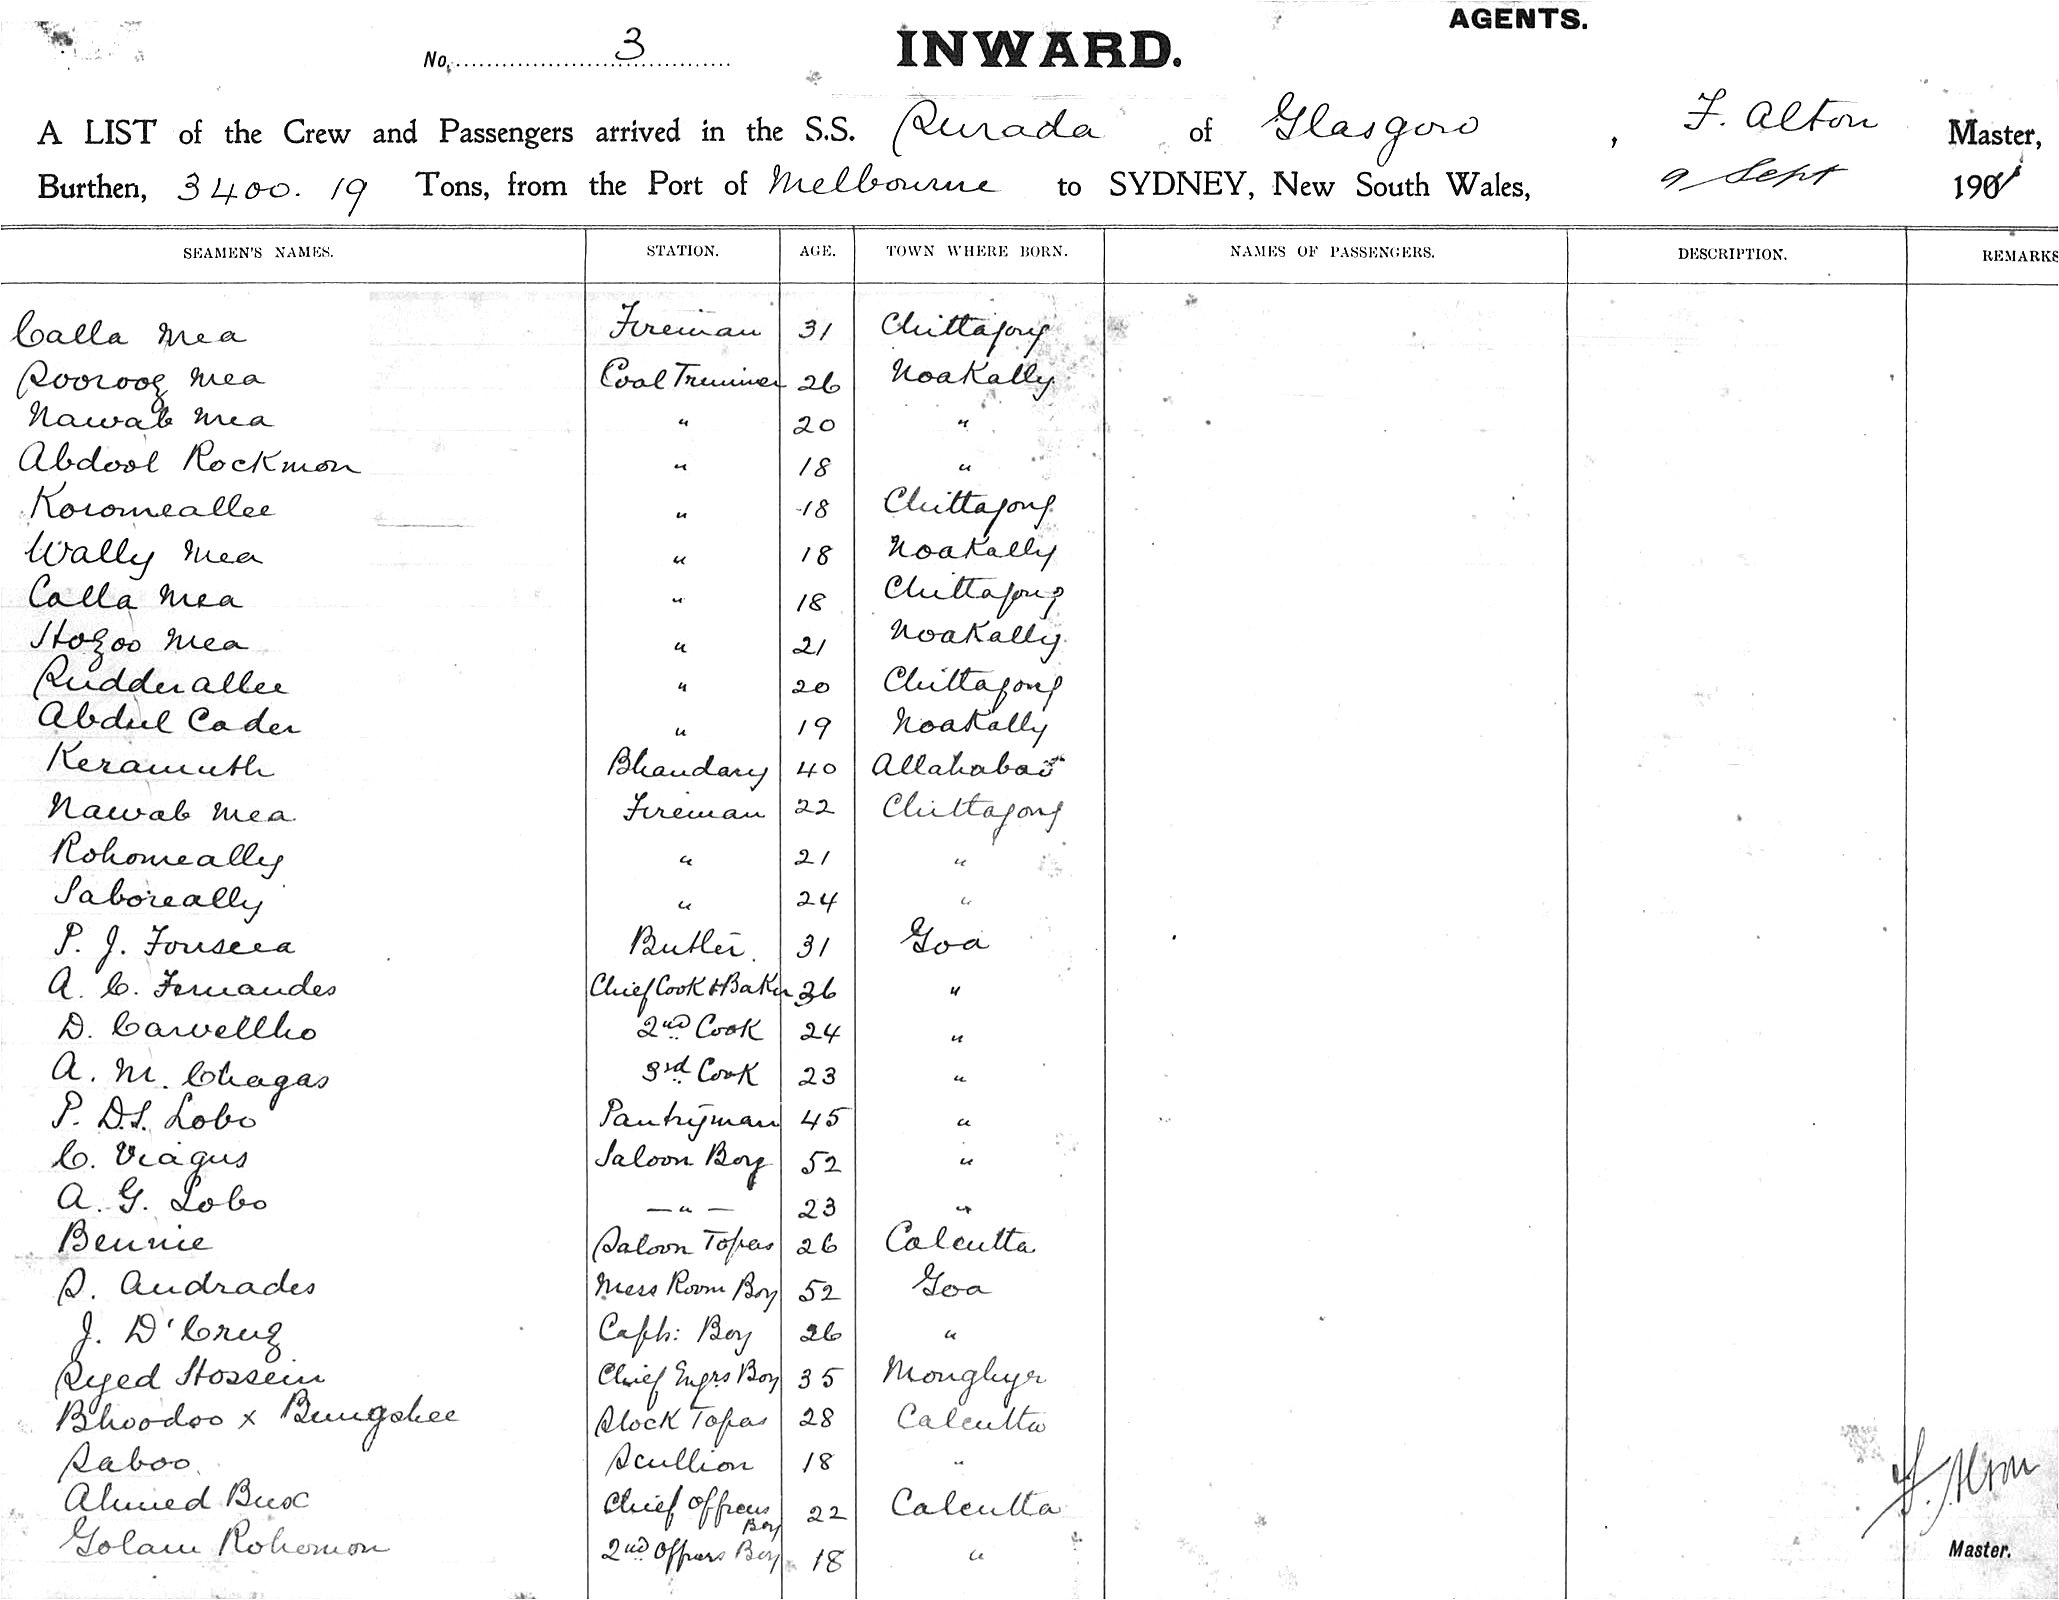 AGENTS.
No. 3 INWARD.
A LIST of the Crew and Passengers arrived in the S.S. Surada of Glasgow, F. Alton Master,
Burthen, 3400.19 Tons, from the Port of Melbourne to SYDNEY, New South Wales, 9 Sept 1901
SEAMEN'S NAMES. STATION. AGE. TOWN WHERE BORN. NAMES OF PASSENGERS. DESCRIPTION. REMARKS
Calla Mea Fireman 31 Chittagong
Sooroog Mea Coal Trimmer 26 Noakally
Nawab Mea " 20 "
Abdool Rockmon " 18 "
Koromeallee " 18 Chittagong
Wally Mea " 18 Noakally
Calla Mea " 18 Chittagong
Hozoo Mea " 21 Noakally
Sudderallee " 20 Chittagong
Abdul Cader " 19 Noakally
Keramuth Bhandary 40 Allahabad
Nawab Mea Fireman 22 Chittagong
Rohomeally " 21 "
Saboreally " 24 "
P. J. Fonseca Butler. 31 Goa
A. C. Fernandes Chief Cook & Baker 36 "
D. Carvellho 2nd Cook 24 "
A. M. Chagas 3rd Cook 23 "
P. D.S. Lobo Pantryman 45 "
C. Viagus Saloon Boy 52 "
A. G. Lobo — " — 23 "
Bennie Saloon Topas 26 Calcutta
S. Andrades Mess Room Boy 52 Goa
J. D'Cruz Capt: Boy 26 "
Syed Hossein Chief Engrs Boy 35 Monghyr
Bhoodoo x Bungshee Slock Topas 28 Calcutta
Saboo. Scullion 18 "
Ahmed Bux Chief Officers Boy 22 Calcutta
Golam Rohomon 2nd Officers Boy 18 "
F. Alton
Master.